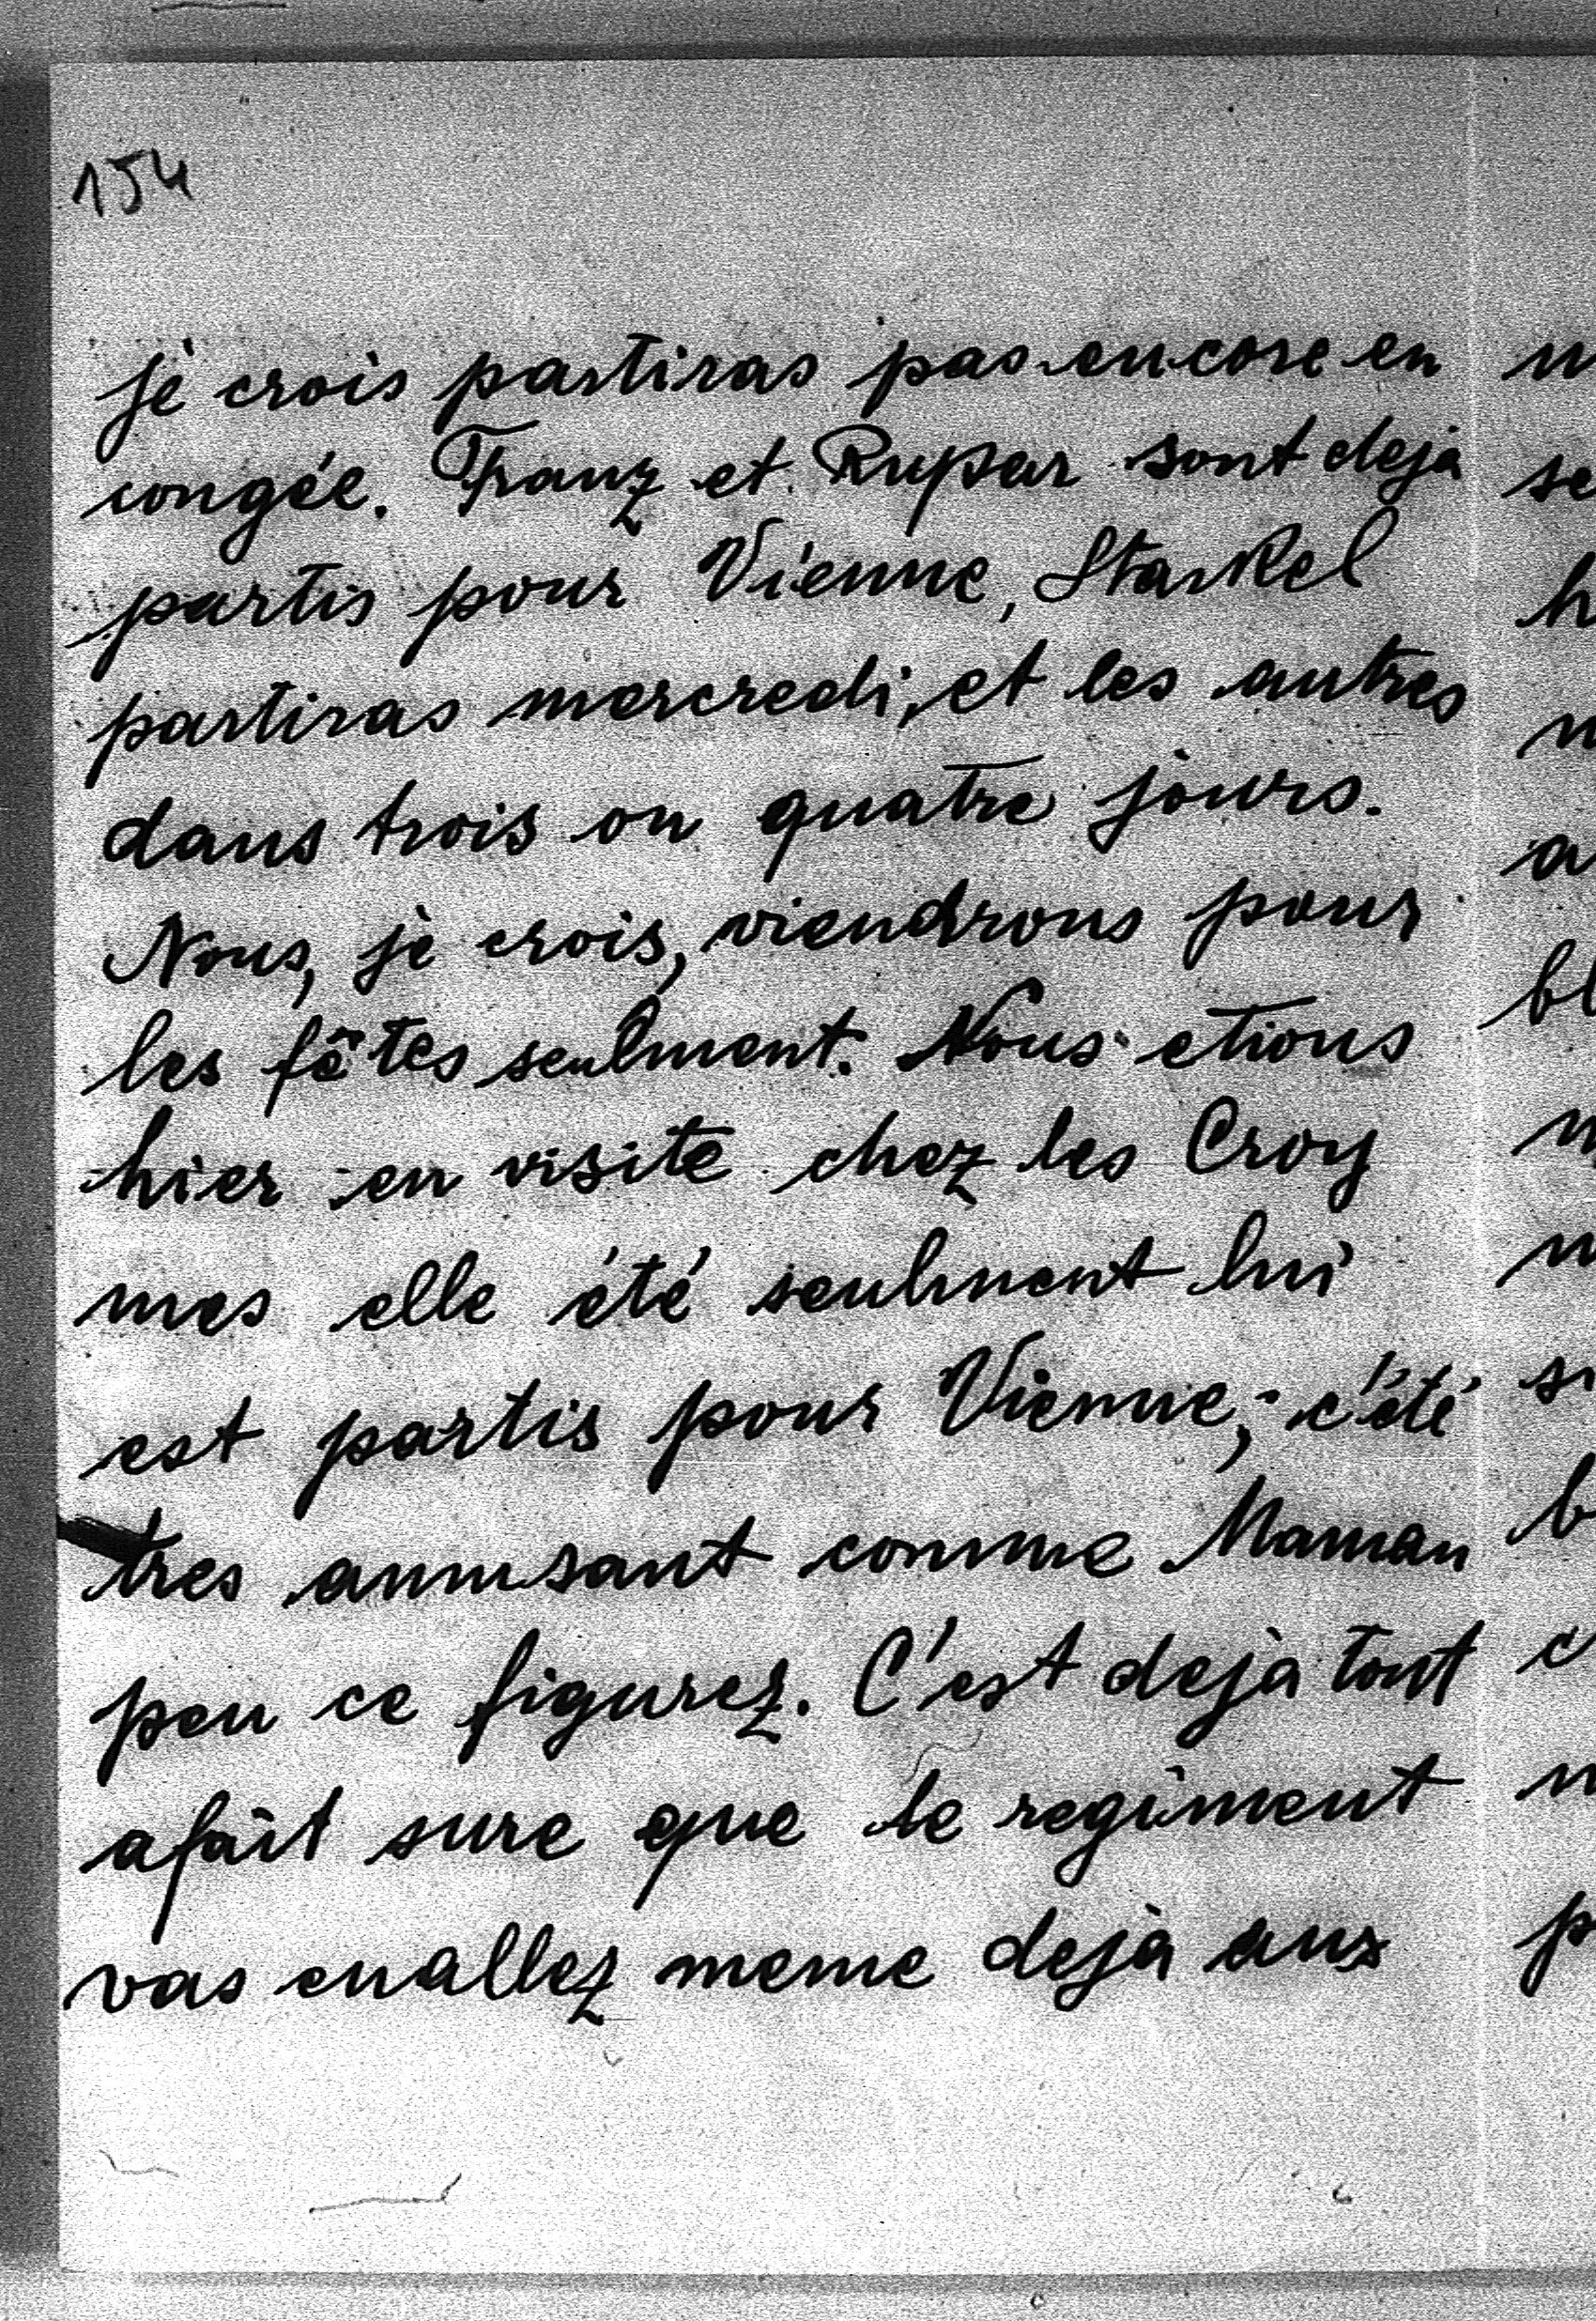 154
je crois partiras pas encore en
congée. Franz et Rupar sont deja
partis pour Vienne, Starkel
partiras mercredi, et les autres
dans trois ou quatre jours.
Nous, je crois, viendrons pour
les fêtes seulment. Nous etions
hier en visite chez les Croy
mes elle été seulment lui
est partis pour Vienne, c'été
tres annusant comme Maman
peu ce figurez. C'est dejà tout
afait sure que le regiment
vas enallez meme dejà aux